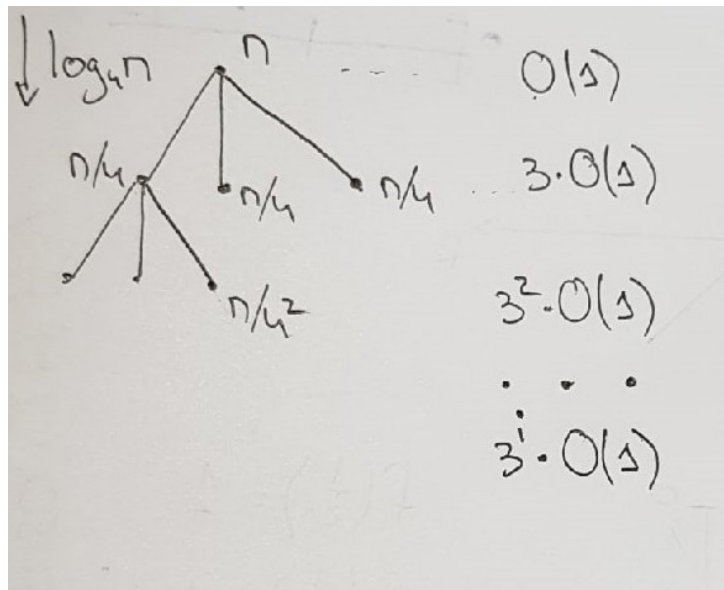 log₄n n .... O(1)
n/4 n/4 n/4 ... 3·O(1)
n/4² 3²·O(1)
. . .
3ⁱ·O(1)